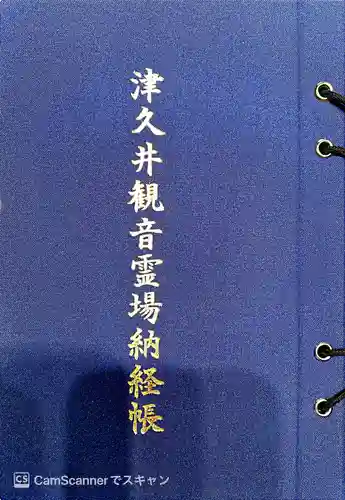 津久井観音霊場納経帳
CS CamScannerでスキャン